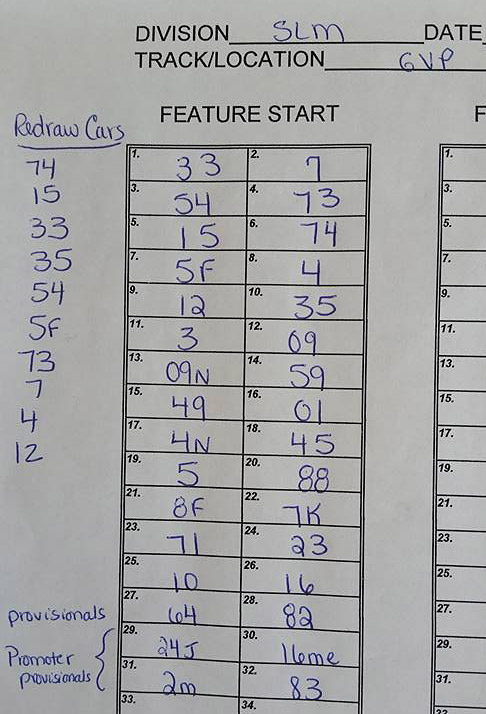 DIVISION SLM DATE
TRACK/LOCATION GVP
FEATURE START F
Redraw Cars
74
15
33
35
54
5F
73
7
4
12
1. 33 2. 7 1.
3. 54 4. 73 3.
5. 15 6. 74 5.
7. 5F 8. 4 7.
9. 12 10. 35 9.
11. 3 12. 09 11.
13. 09N 14. 59 13.
15. 49 16. 01 15.
17. 4N 18. 45 17.
19. 5 20. 88 19.
21. 8F 22. 7K 21.
23. 71 24. 23 23.
25. 10 26. 16 25.
provisionals 27. 64 28. 82 27.
Promoter provisionals 29. 24J 30. 16me 29.
31. 2m 32. 83 31.
33. 34. 33